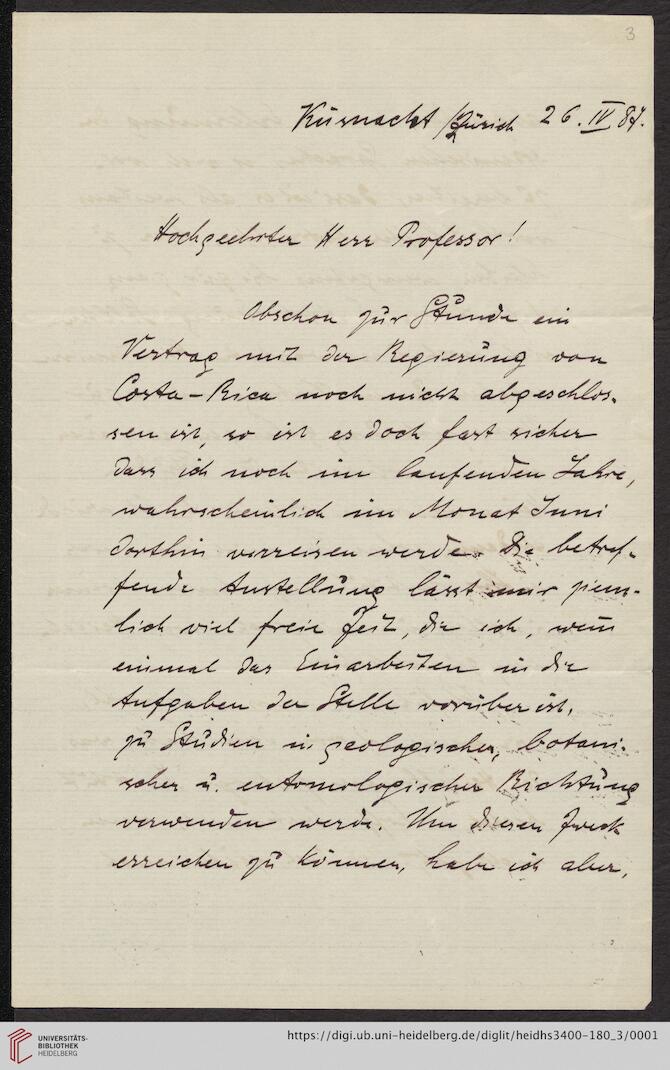 3
Küsnacht /Zürich 26. IV. 87.
Hochgeehrter Herr Professor!
Obschon zur Stunde ein
Vertrag mit der Regierung von
Costa-Rica noch nicht abgeschlos-
sen ist, so ist es doch fast sicher
dass ich noch im laufenden Jahre,
wahrscheinlich im Monat Juni
dorthin verreisen werde. Die betref-
fende Anstellung lässt mir ziem-
lich viel freie Zeit, die ich, wenn
einmal das Einarbeiten in die
Aufgaben der Stelle vorüber ist,
zu Studien in geologischer, botani-
scher u. entomologischer Richtung
verwenden werde. Um diesen Zweck
erreichen zu können, habe ich aber,
UNIVERSITÄTS-
BIBLIOTHEK
HEIDELBERG
https://digi.ub.uni-heidelberg.de/diglit/heidhs3400-180_3/0001